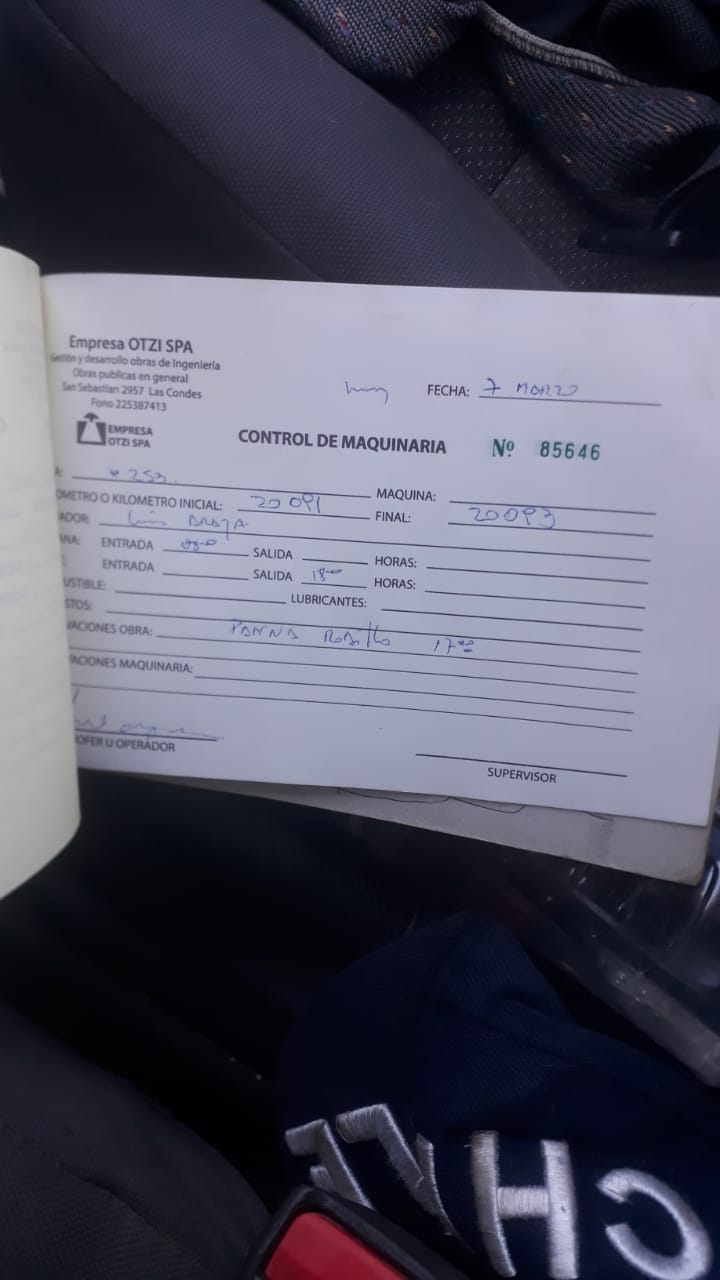 Empresa OTZI SPA
Gestión y desarrollo obras de Ingeniería
Obras publicas en general
San Sebastian 2957 Las Condes
Fono 225387413
EMPRESA
OTZI SPA
FECHA: 7 MARZO
CONTROL DE MAQUINARIA Nº 85646
A: 253 MAQUINA:
OMETRO O KILOMETRO INICIAL: 20091 FINAL: 20093
ADOR: Luis
ANA: ENTRADA SALIDA HORAS:
ENTRADA SALIDA 18:00 HORAS:
USTIBLE: LUBRICANTES:
STOS:
VACIONES OBRA: PANNA Rodillo 17:00
VACIONES MAQUINARIA:
HOFER U OPERADOR
SUPERVISOR
CHILE